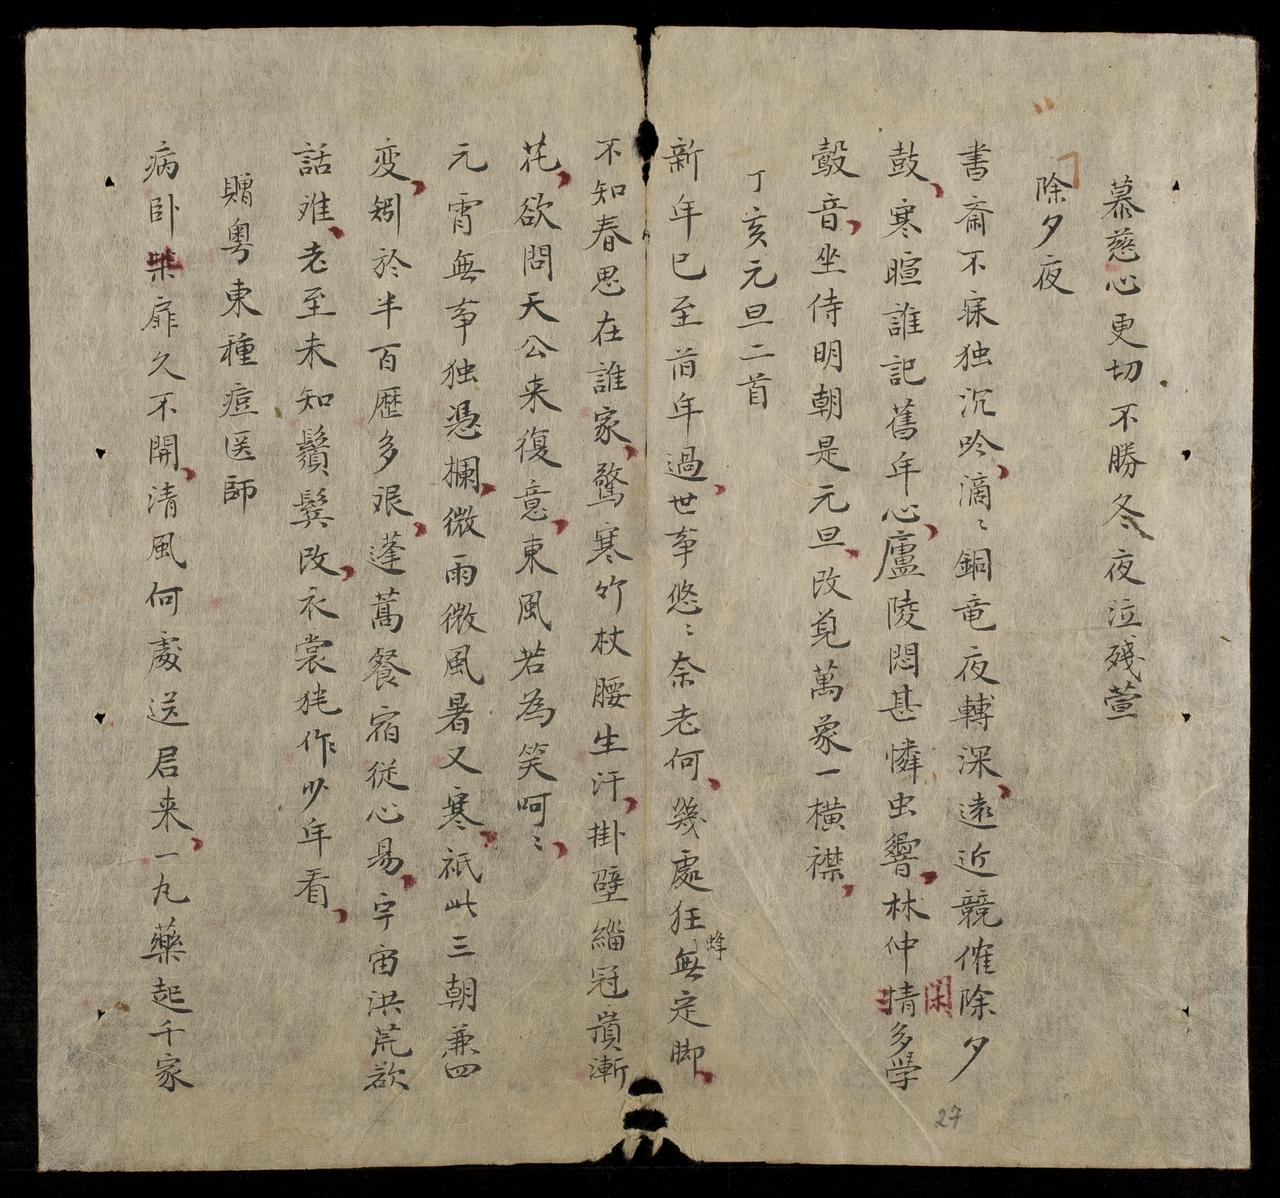 慕慈心更切不勝冬夜泣殘萱
除夕夜
書齋不寐独沉吟滴〻銅竜夜轉深遠近競催除夕
鼓寒暄誰記舊年心廬陵悶甚憐虫響林仲情多学
閑
鷇音坐侍明朝是元旦改萬象一横襟
丁亥元旦二首
新年已至旧年過世亊悠〻奈老何幾處狂無定脚
蜂
不知春思在誰家驚寒竹杖腰生汗掛壁緇冠漸
花欲問天公来復意東風若為笑呵〻
元霄無亊独憑欄微雨微風暑又寒祇此三朝兼四
变矧於半百歴多艰蓬蒿餐宿従心易宇宙洪荒欲
話难老至未知鬚鬓改衣裳作少年看
贈粤東種痘医師
病卧柴扉久不開清風何處送君来一丸藥起千家
27